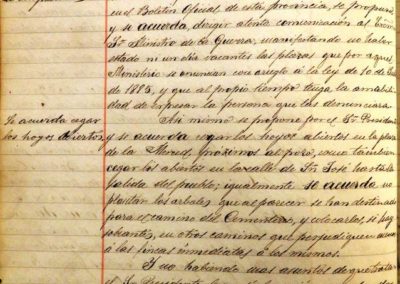 en el Boletin Oficial de esta provincia, se propuso
y se acuerda, dirigir atenta comunicacion al Exmo
Sr. Ministro de la Guerra, manifestando no haber
estado ni un dia vacantes las plazas que por aquel
Ministerio se anuncian con arreglo á la ley de 10 de Julio
de 1885, y que al propio tiempo tenga la amabili-
dad de espresar la persona que las denunciara
Se acuerda cegar
los hoyos abiertos
Asi mismo se propuso por el Sr. Presidente
y se acuerda cegar los hoyos abiertos en la plaza
de la Merced, próximos al pozo, como tambien
cegar los abiertos en la calle de Sn José hasta la
salida del pueblo; igualmente se acuerda no
plantar los arboles que al parecer se han destinado
para el camino del Cementerio, y colocarlos, si hay
sobrantes, en otros caminos que perjudiquen menos
á las fincas inmediatas á los mismos.
Y no habiendo mas asuntos de que tratar
el Sr. Presidente